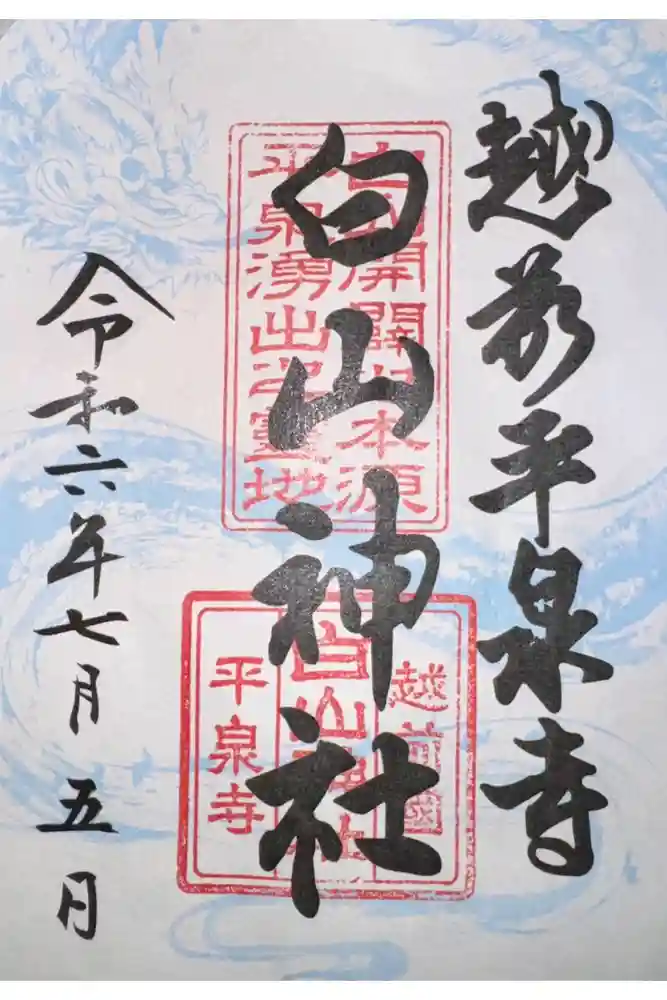 越前平泉寺
白山神社
令和六年七月五日
白山開闢之本源
平泉湧出之霊地
越前國
白山神社
平泉寺